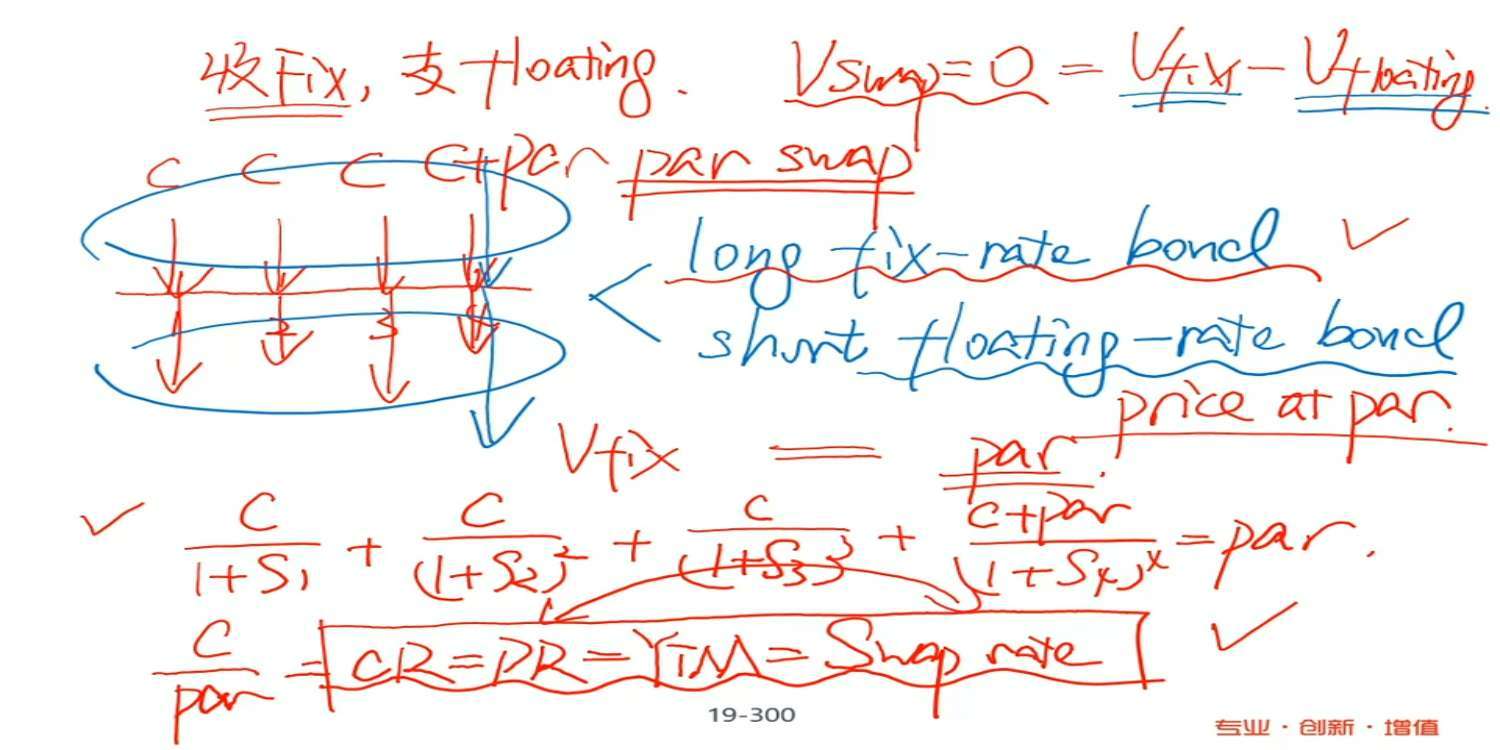 收Fix, 支floating. Vswap=0 = Vfix - Vfloating.
C C C C+par par swap
long fix-rate bond ✓
1 2 3 4
short floating-rate bond
price at par.
Vfix = par.
✓ C/(1+S₁) + C/(1+S₂)² + C/(1+S₃)³ + (C+par)/(1+S₄)⁴ = par.
C/par = CR=PR=YTM=Swap rate ✓
19-300
专业·创新·增值